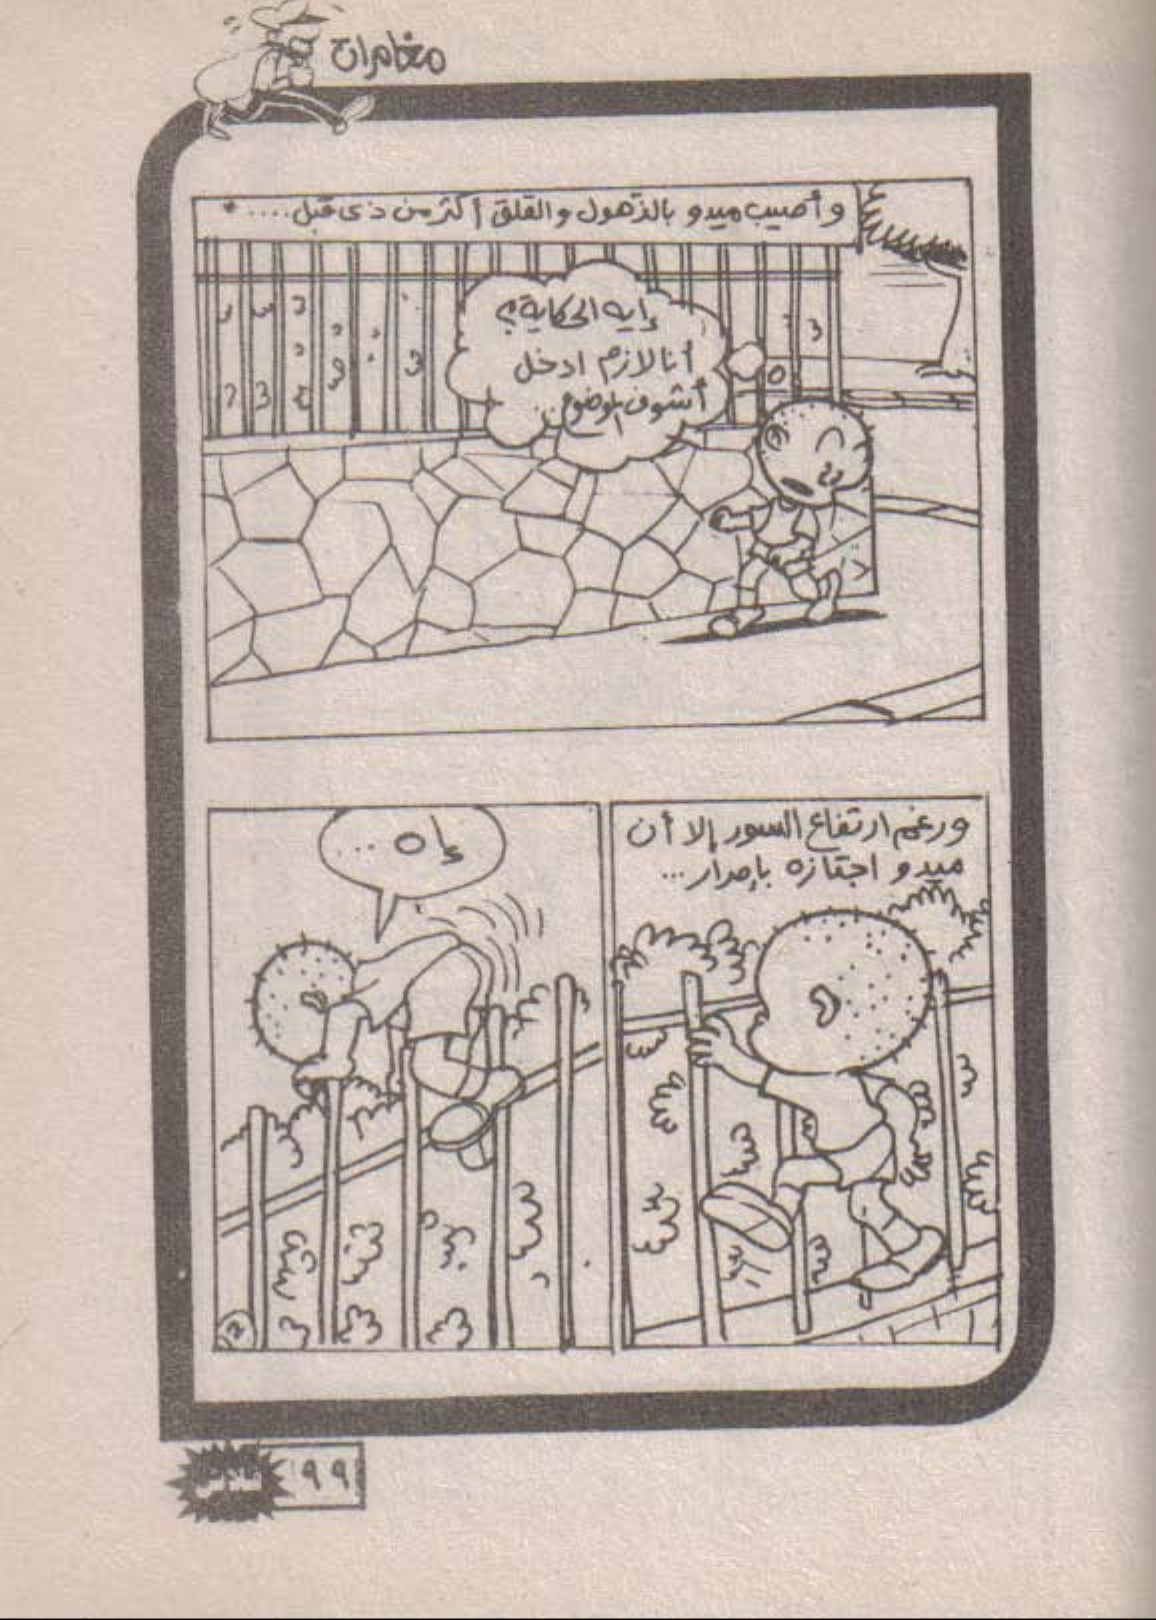 مغامرات
وأصيب ميدو بالذهول والقلق أكثر من ذى قبل....
إيه الحكاية؟
أنا لازم ادخل
أشوف الموضوع..
ورغم ارتفاع السور إلا أن
ميدو اجتازه بإصرار...
إه...
١٢
٩٩